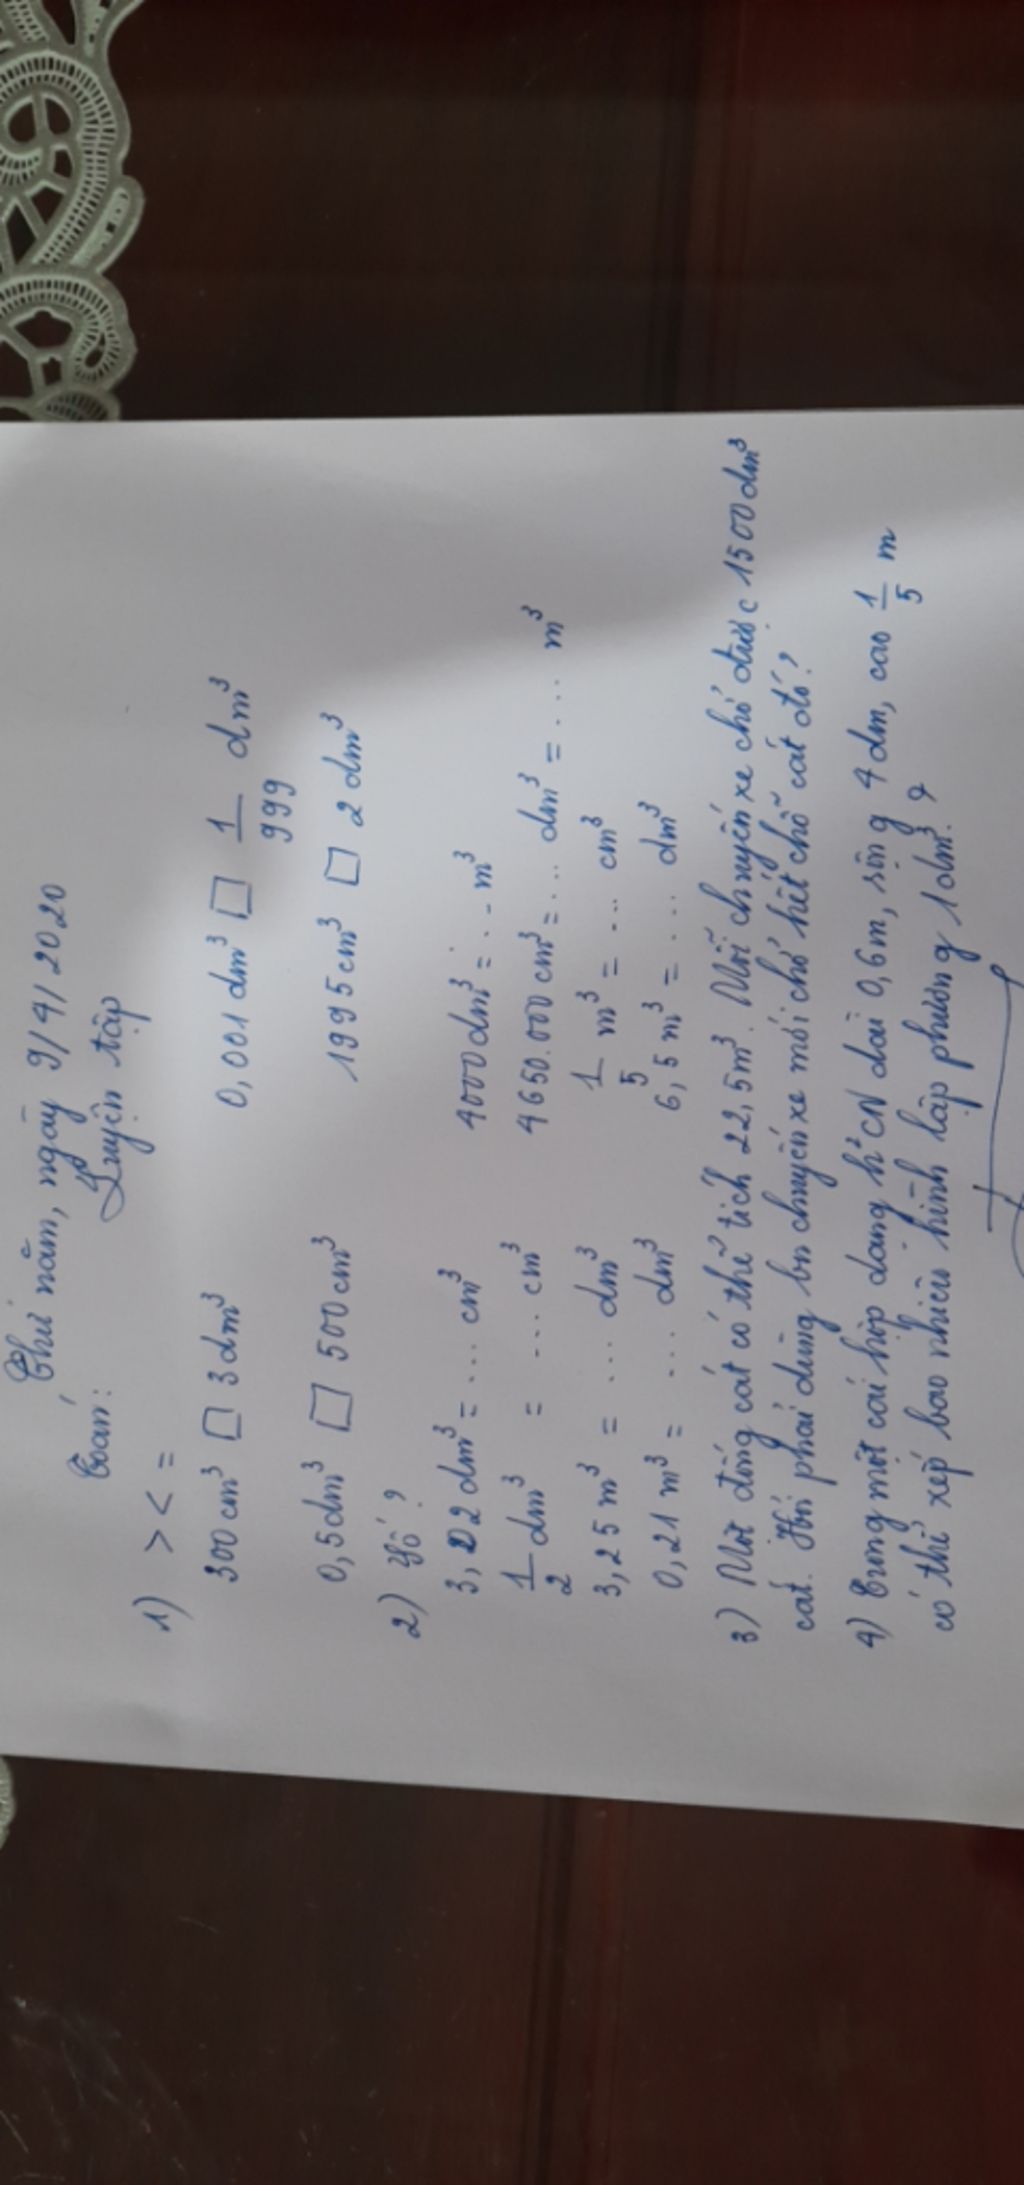 Thứ năm, ngày 9/4/2020
Toán: Luyện tập
1) > < =
300 cm³ □ 3 dm³ 0,001 dm³ □ 1/999 dm³
0,5 dm³ □ 500 cm³ 1995 cm³ □ 2 dm³
2) Số?
3,22 dm³ = ... cm³ 4000 dm³ = ... m³
1/2 dm³ = ... cm³ 4650.000 cm³ = ... dm³ = ... m³
3,25 m³ = ... dm³ 1/5 m³ = ... cm³
0,21 m³ = ... dm³ 6,5 m³ = ... dm³
3) Một đống cát có thể tích 22,5 m³. Mỗi chuyến xe chở được 1500 dm³
cát. Hỏi phải dùng bn chuyến xe mới chở hết chỗ cát đó?
4) Trong một cái hộp dạng h²CN dài 0,6 m, rộng 4 dm, cao 1/5 m
có thể xếp bao nhiêu hình lập phương 1 dm³?